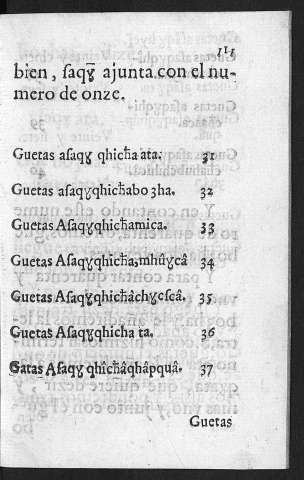 111
bien, ſaqɣ̄ ajunta con el nu-
mero de onze.
Guetas aſaqɣ qhicħa ata. 31
Guetas aſaqɣqhicħabo ʒha. 32
Guetas Aſaqɣqhicħamica. 33
Guetas Aſaqɣ qhicħa,mhûɣcâ 34
Guetas Aſaqɣqhicħâchɣcſcâ, 35
Guetas Aſaqɣqhicha ta. 36
Gatas Aſaqɣ qhîcħâqhâpquâ. 37
Guetas